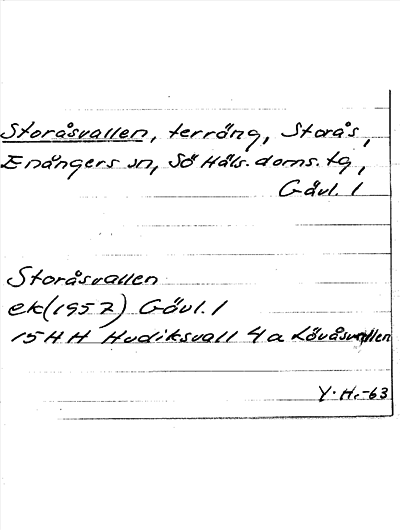 Storåsvallen, terräng, Storås,
Enångers sn, Sö Häls. doms. tg,
Gävl. l
Storåsvallen
ek(1957) Gävl. l
15 H H Hudiksvall 4 a Lövåsvallen
Y. H. -63